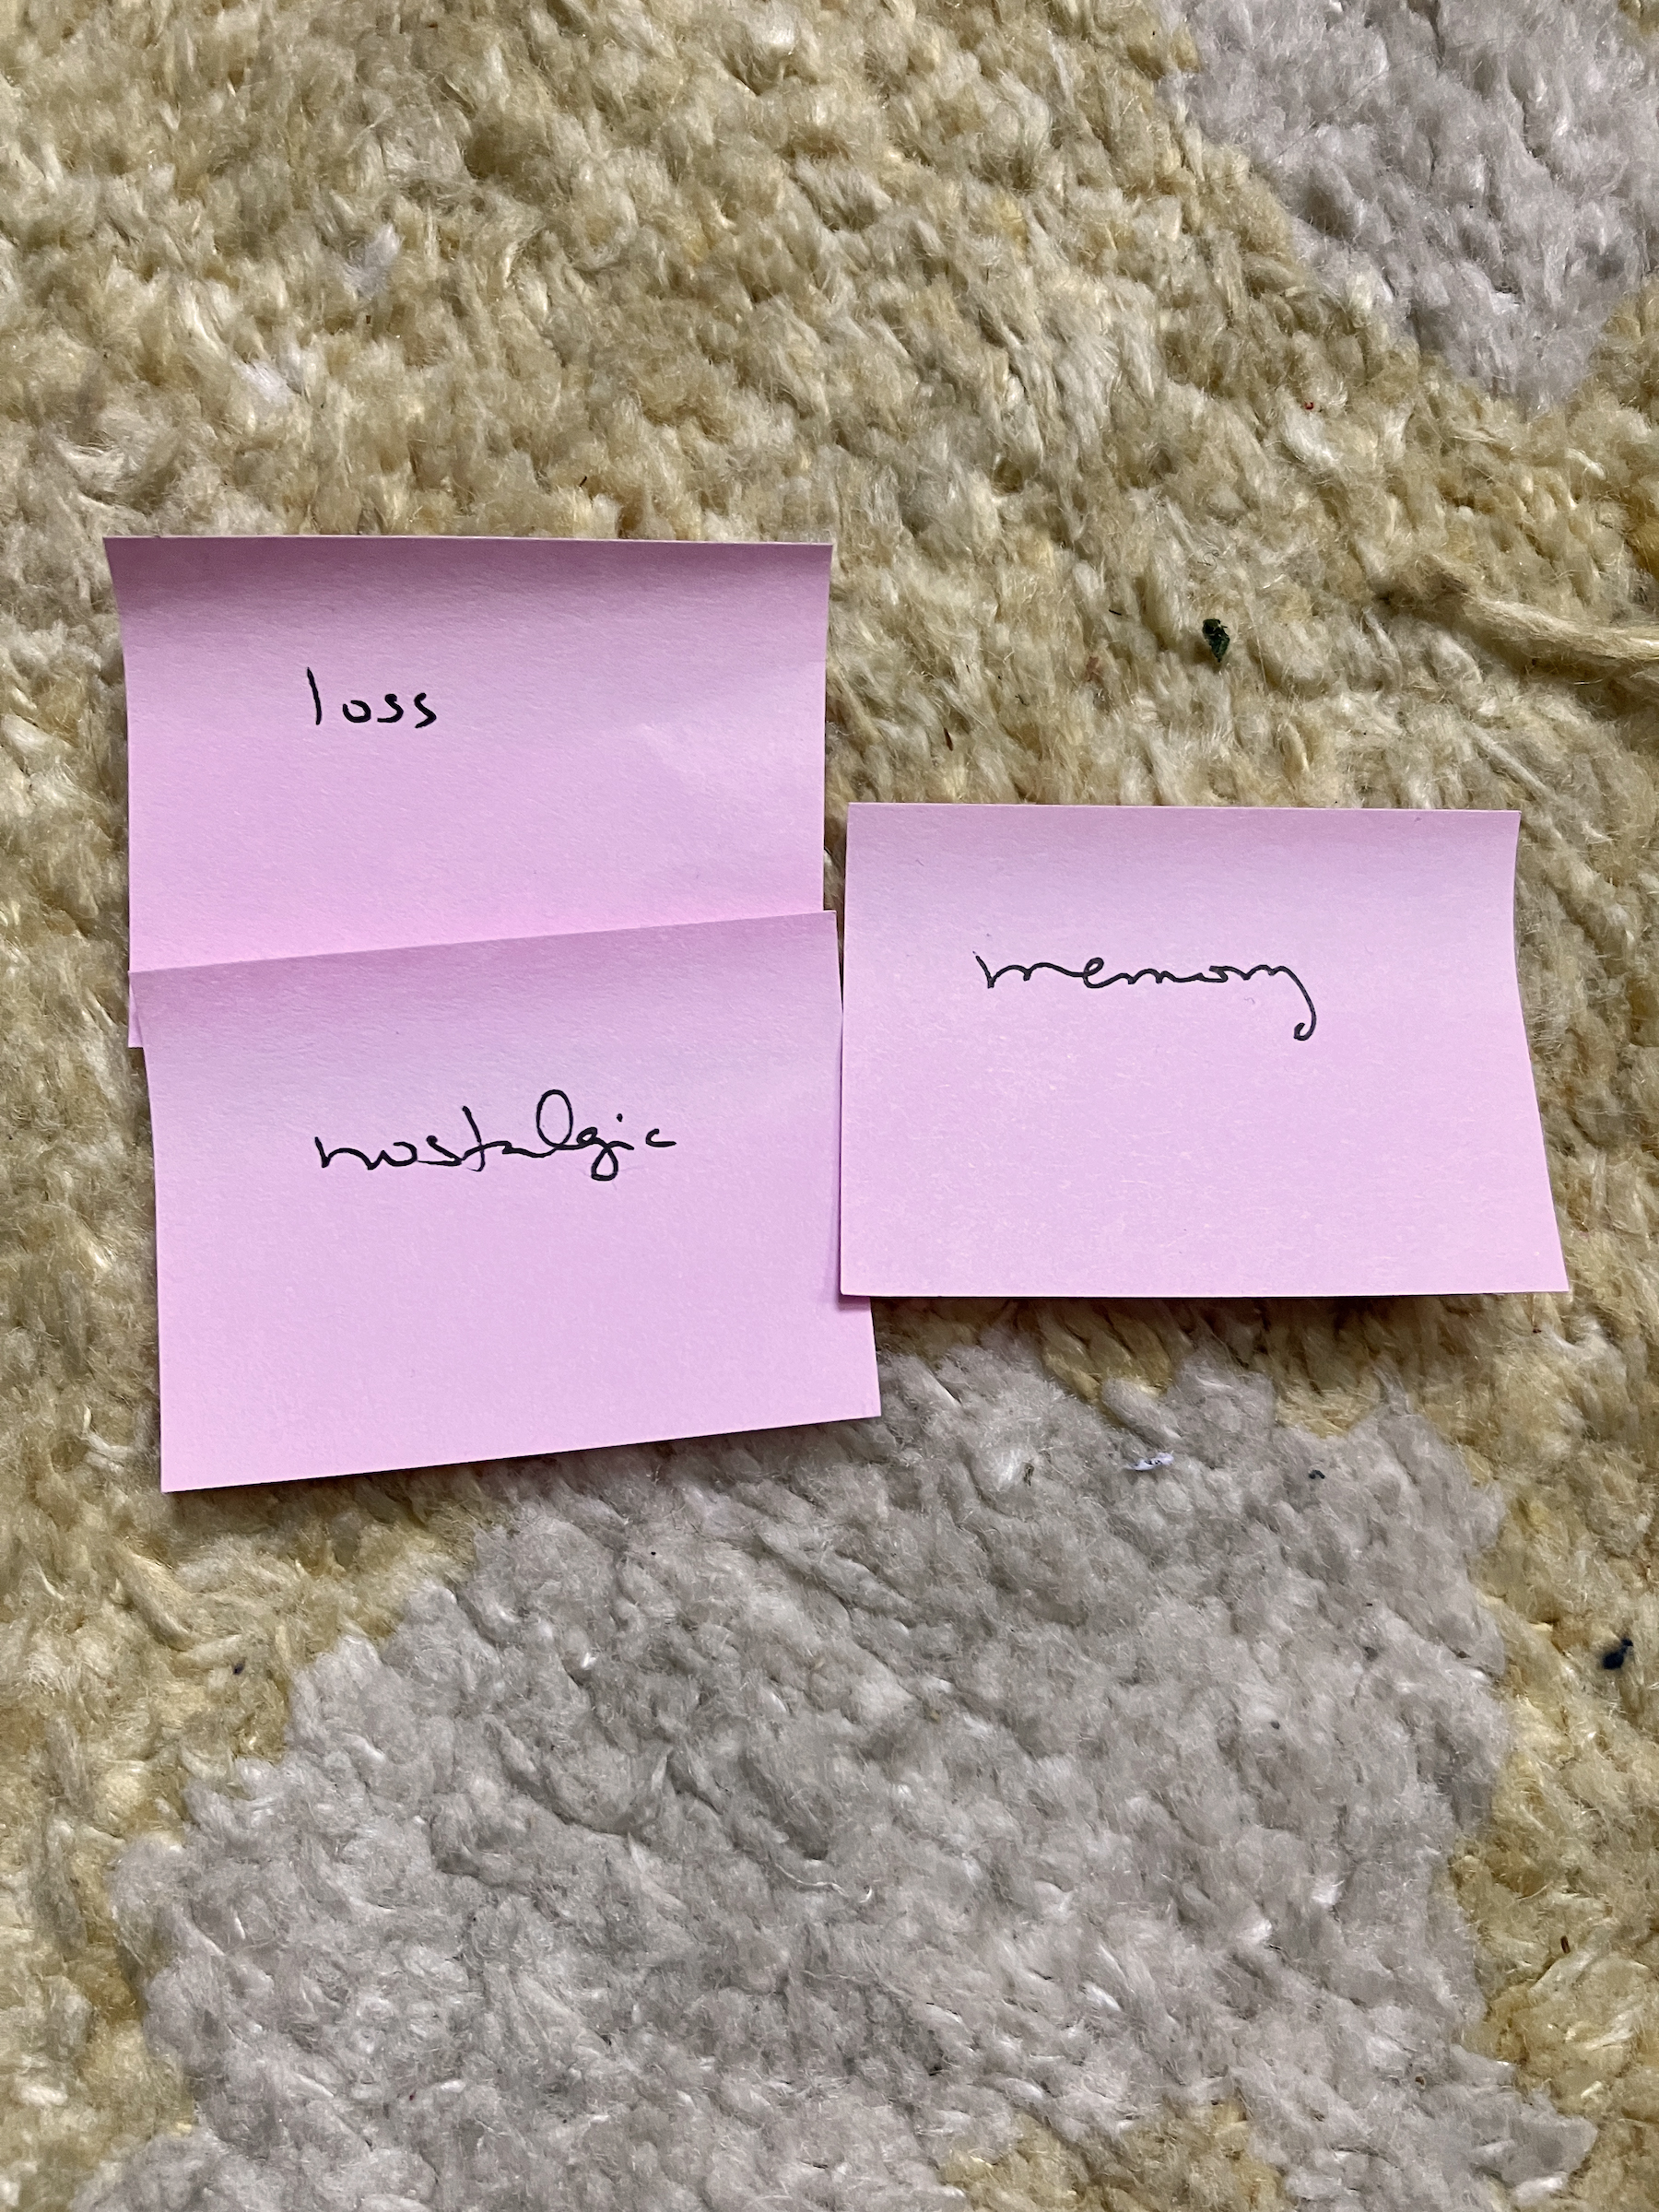 loss
nostalgic
memory